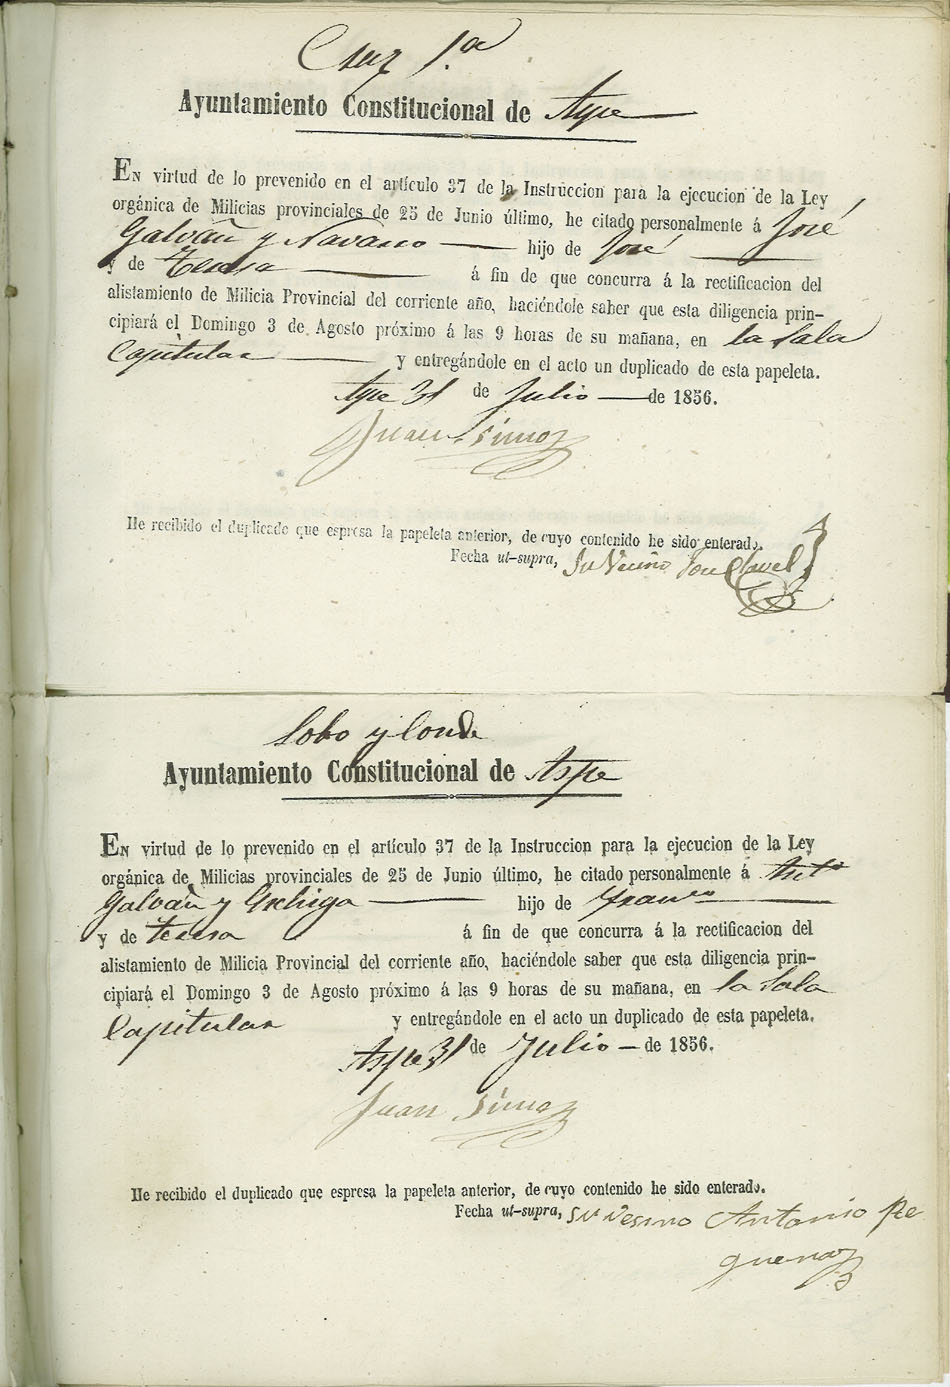 Cruz 1.a
Ayuntamiento Constitucional de Aspe
EN virtud de lo prevenido en el artículo 37 de la Instruccion para la ejecucion de la Ley
orgánica de Milicias provinciales de 25 de Junio último, he citado personalmente á José
Galvañ y Navarro hijo de José
y de Teresa á fin de que concurra á la rectificacion del
alistamiento de Milicia Provincial del corriente año, haciéndole saber que esta diligencia prin-
cipiará el Domingo 3 de Agosto próximo á las 9 horas de su mañana, en la Sala
Capitular y entregándole en el acto un duplicado de esta papeleta.
Aspe 31 de Julio de 1856.
Juan Simon
He recibido el duplicado que espresa la papeleta anterior, de cuyo contenido he sido enterado.
Fecha ut-supra, Su Vecino
Lobo y Conde
Ayuntamiento Constitucional de Aspe
EN virtud de lo prevenido en el artículo 37 de la Instruccion para la ejecucion de la Ley
orgánica de Milicias provinciales de 25 de Junio último, he citado personalmente á Anto
Galvañ y hijo de Franco
y de teresa á fin de que concurra á la rectificacion del
alistamiento de Milicia Provincial del corriente año, haciéndole saber que esta diligencia prin-
cipiará el Domingo 3 de Agosto próximo á las 9 horas de su mañana, en la Sala
Capitular y entregándole en el acto un duplicado de esta papeleta.
Aspe 31 de Julio de 1856.
Juan Simon
He recibido el duplicado que espresa la papeleta anterior, de cuyo contenido he sido enterado.
Fecha ut-supra, Su Vesino Antonio Re
quena